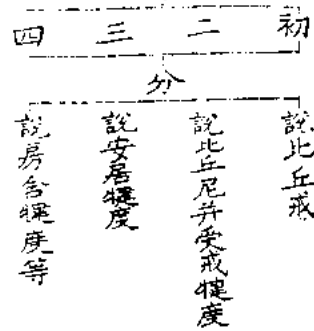 初 二 三 四
分
說比丘戒
說比丘尼并受戒犍度
說安居犍度
說房舍犍度等